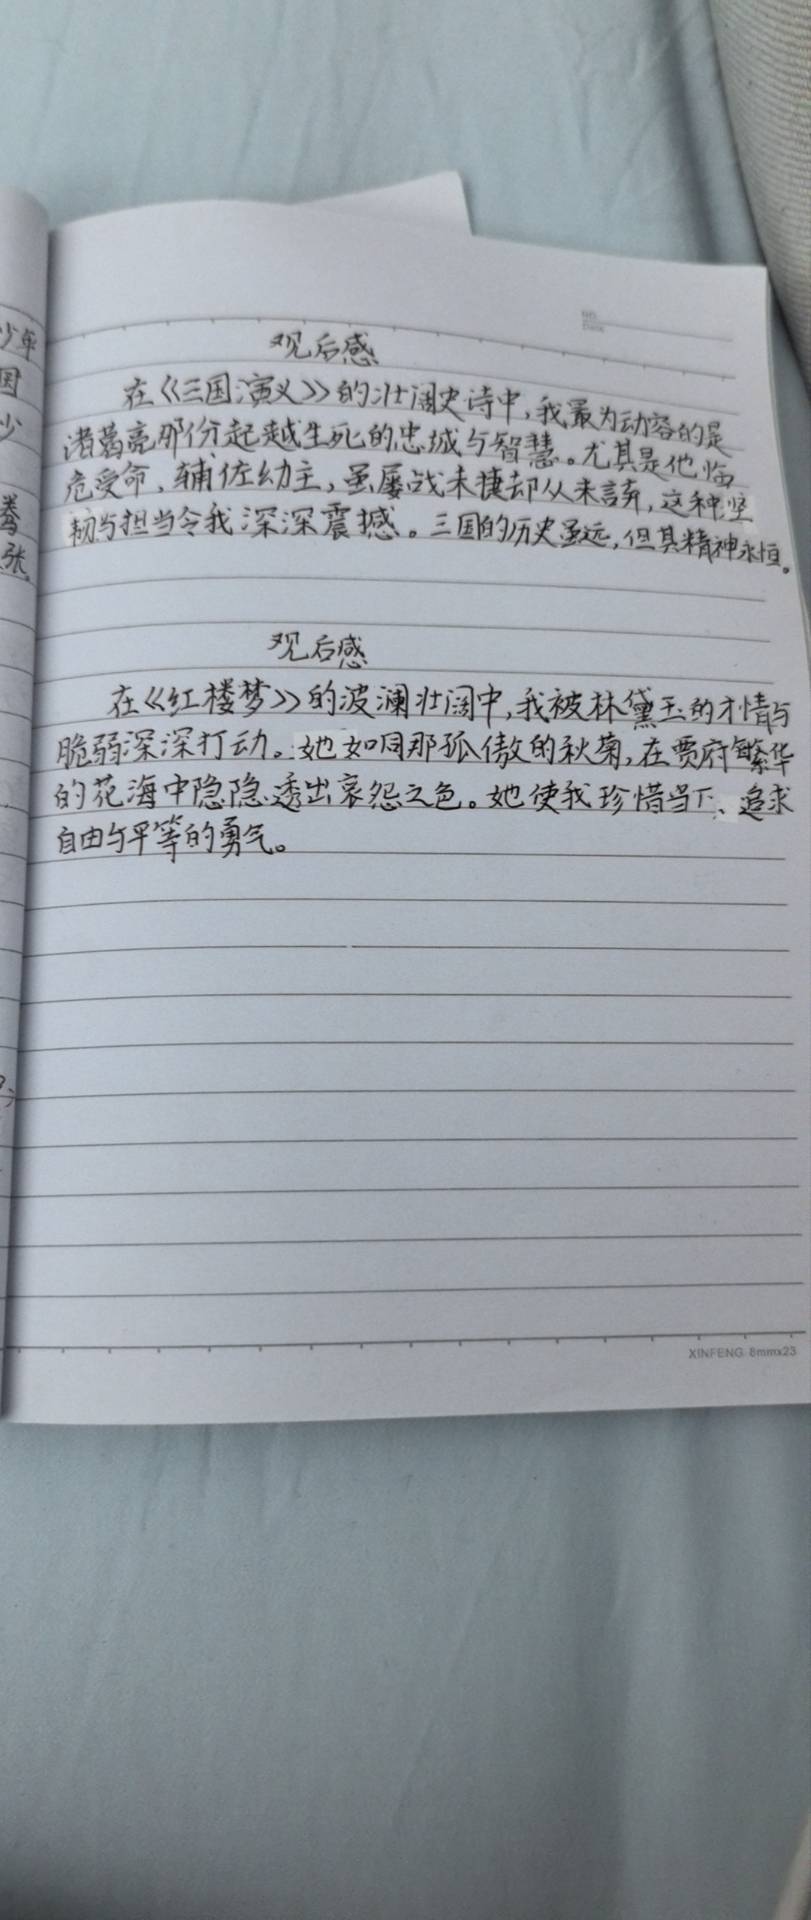 NO.
DATE
观后感
在《三国演义》的壮阔史诗中,我最为动容的是
诸葛亮那份起越生死的忠诚与智慧。尤其是他临
危受命、辅佐幼主,虽屡战未捷却从未言弃,这种坚
韧与担当令我深深震撼。三国的历史虽远,但其精神永恒。
观后感
在《红楼梦》的波澜壮阔中,我被林黛玉的才情与
脆弱深深打动。她如同那孤傲的秋菊,在贾府繁华
的花海中隐隐透出哀怨之色。她使我珍惜当下、追求
自由与平等的勇气。
XINFENG 8mmx23
少年
国
少
张